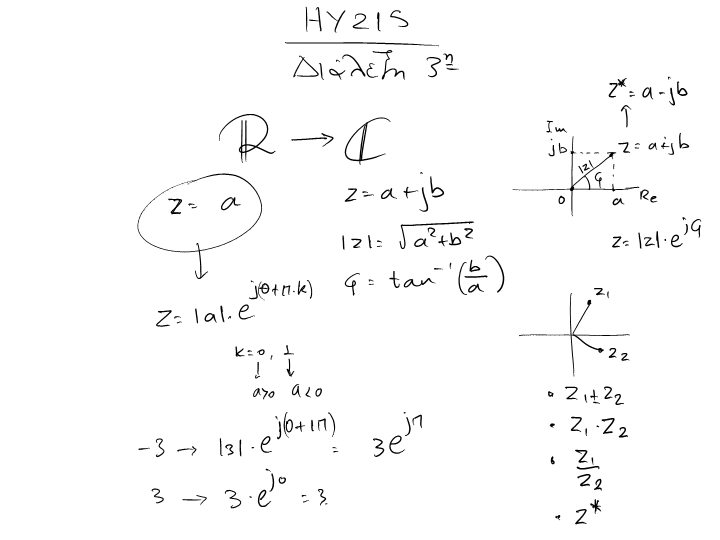 HY215
Διάλεξη 3η
ℝ → ℂ
z = a
z = a + jb
|z| = √(a²+b²)
φ = tan⁻¹(b/a)
z = |a|·e^{j(0+π·k)}
k=0, 1
a>0 a<0
-3 → |3|·e^{j(0+1π)} = 3e^{jπ}
3 → 3·e^{j0} = 3
z* = a-jb
Im
jb
z = a+jb
|z|
φ
0 a Re
z = |z|·e^{jφ}
z₁
z₂
• z₁±z₂
• z₁·z₂
• z₁/z₂
• z*